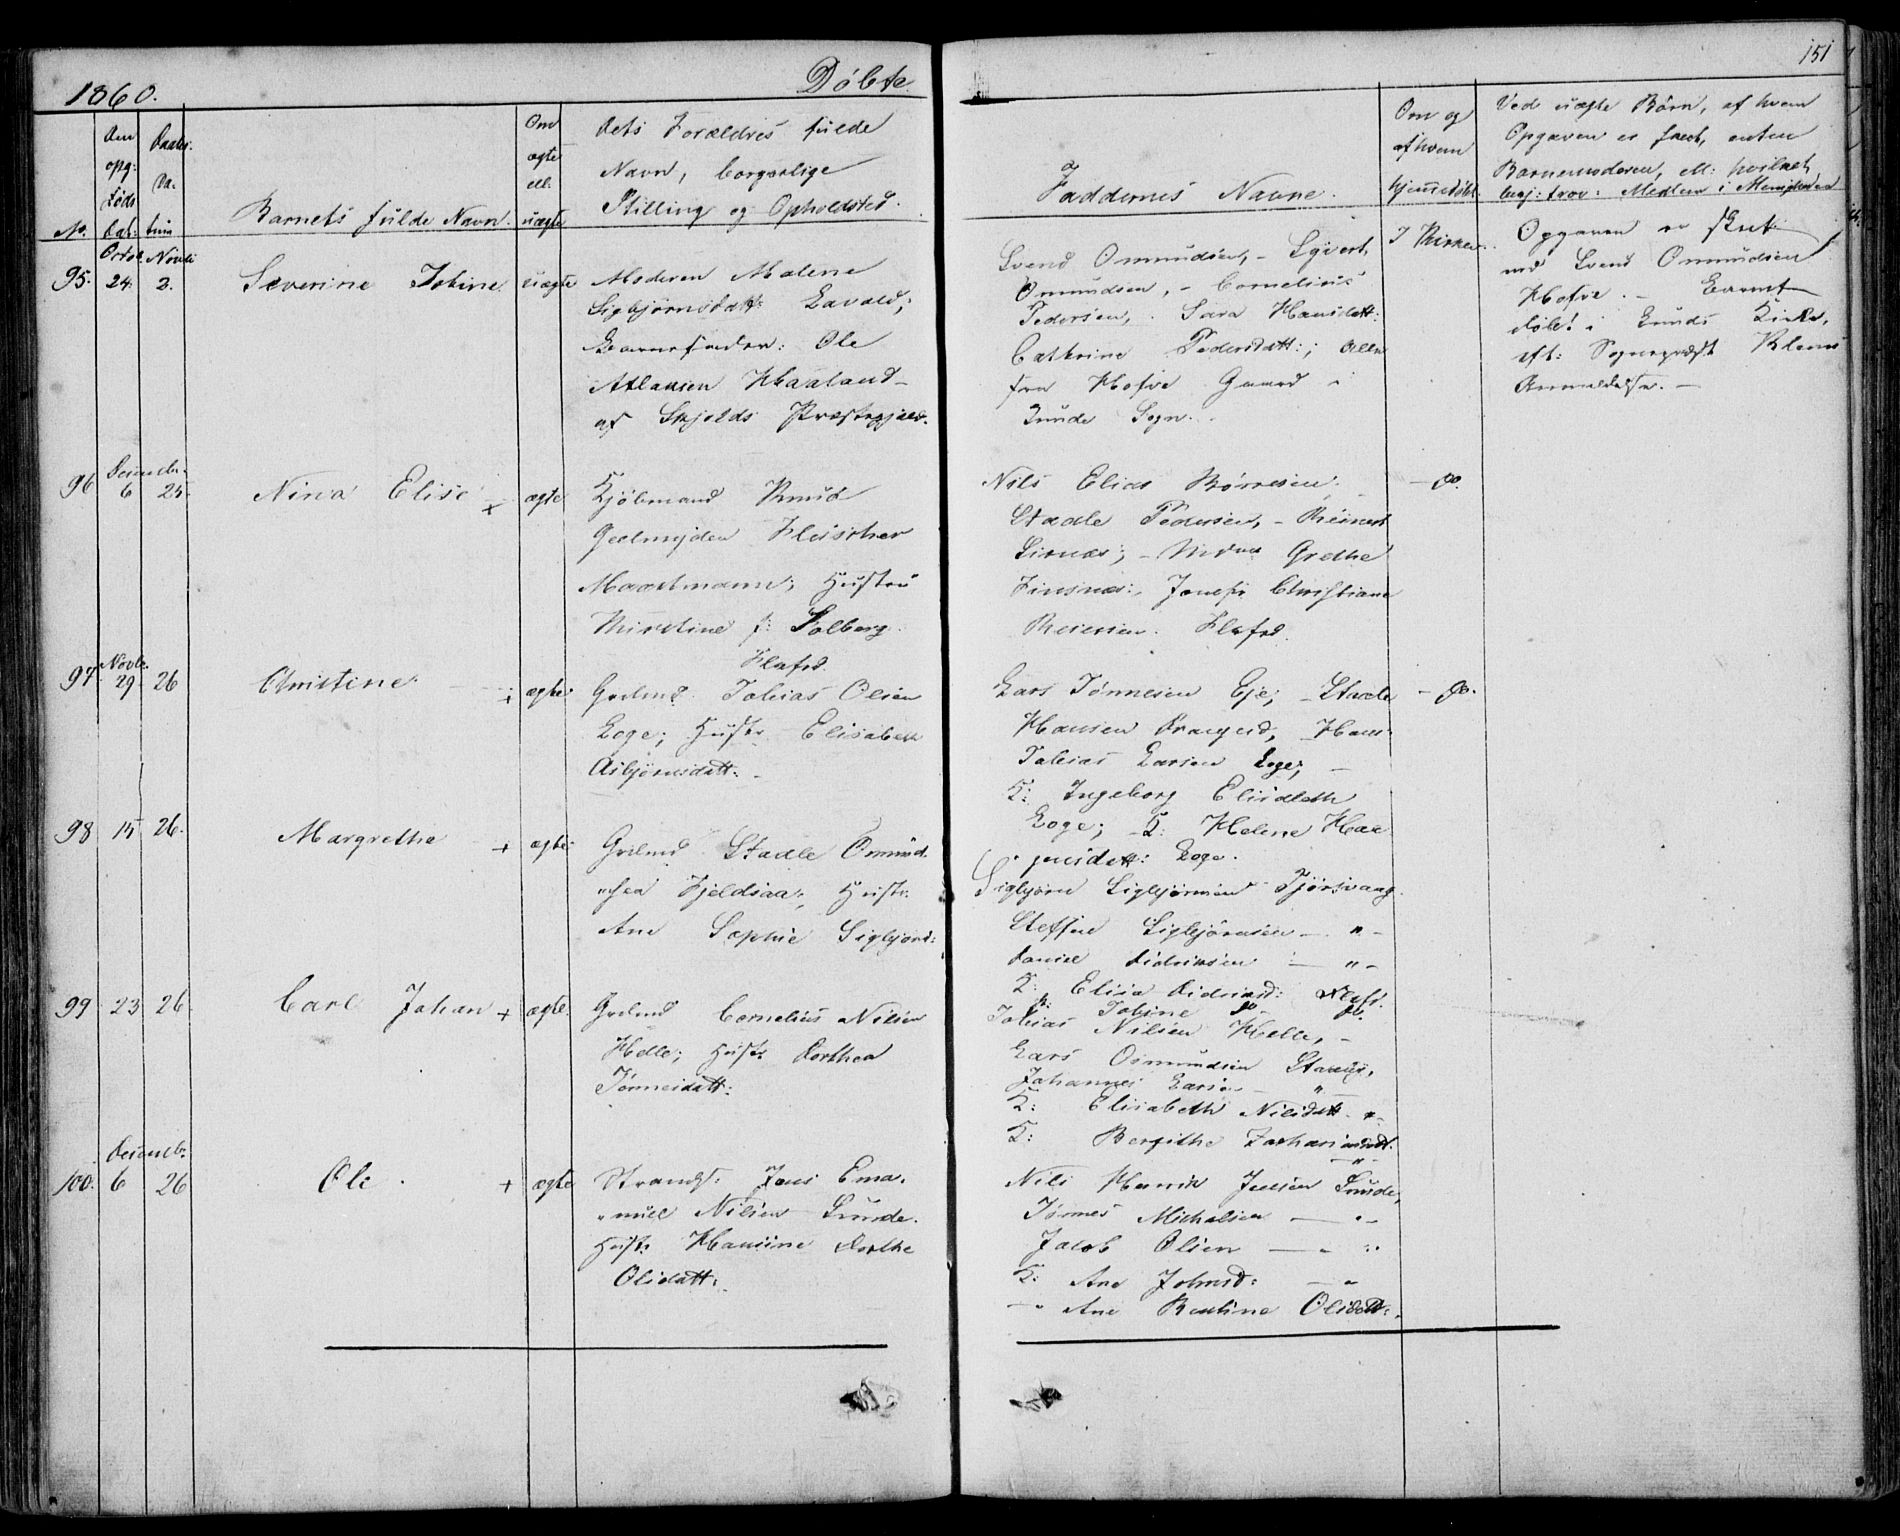 1860.
Döbte
151
No.
Den opg: Føds Dat:
Daabs. Da- tum
Barnets fulde Navn.
Om ægte ell. uægte
Dets Forældres fulde
Navn, borgerlige
Stilling og Opholdsted.
Faddernes Navne.
Om og af hvem hjemmedøbt
Ved uægte Børn, af hvem
Opgaven er skeet, enten
Barnemoderen, ell: hvilket
Medlem i Menigheden
95. Octob 24. Novbr 2.
Severine Tobine
uægte
Moderen Malene
Sigbjørnsdatt: Lavold;
Barnefader: Ole
Atlaksen Haaland
af Skjolds Præstegjæld.
Svend Ommundsen, - Sigvert
Ommundsen, - Cornelius
Pedersen, - Sara Hansdatt:
Cathrine Pedersdatt:; Alle
fra Hofve Gaard i
Lunde Sogn.
I Kirken.
Opgaven er skeet
ved Svend Ommundsen
Hofve. - Barnet
døbt i Lunds Kirke,
eft: Sognepræst
Anmeldelse. -
96 December 6 25.
Nina Elise +
ægte
Kjøbmand Knud
Geelmyden Fleischer
Maartmann; Hustru
Kirstine f: Solberg.
Flefd.
Nils Elias Børresen.
Stadle Pedersen, - Reinert
Sirnæs; - Grethe
Jonefr Christiane
Flefrd.
- do.
97 Novbr. 29 26
Christine +
ægte
Grdmd. Tobias Olsen
Loge; Hustr. Elisabeth
Asbjørnsdatt:
Lars Tønnesen Eje; - Stadle
Hansen Drangeid, - Hans
Tobias Larsen Loge; -
K: Ingeborg Elisabeth
Loge; - K: Helene Haa-
Loge.
- do.
98 15 26.
Margrethe +
ægte
Grdmd Stadle Ommund-
"sen Fjeldsaa; Hustr:
Ane Sophie Sigbjørnd:
Sigbjørn Sigbjørnsen Tjørsvaag.
Steffen Sigbjørnsen - " -
Daniel Didriksen - " -
K: Elisa Didriksd: Flefd.
K: Tobine do do.
99 23 26
Carl Johan +
ægte.
Grdmd Cornelius Nilsen
Helle; Hustr Dorthea
Tønnesdatt:
Tobias Nilsen Helle, -
Lars Osmundsen
Johannes Larsen - "
K: Elisabeth Nilsdatt. " -
K: Bergithe Zachariasdatt.
- " -
100. December 6 26
Ole. +
ægte
Strands: Jens Ema-
"nuel Nilsen Lunde.
Hustr Hansine Dorthe
Olsdatt:
Nils Henrik Jensen Lunde,
Tønnes Michalsen - " -
Jacob Olsen - "
K: Ane Johnsd: - "
- " Ane Bentine Olsdatt:.